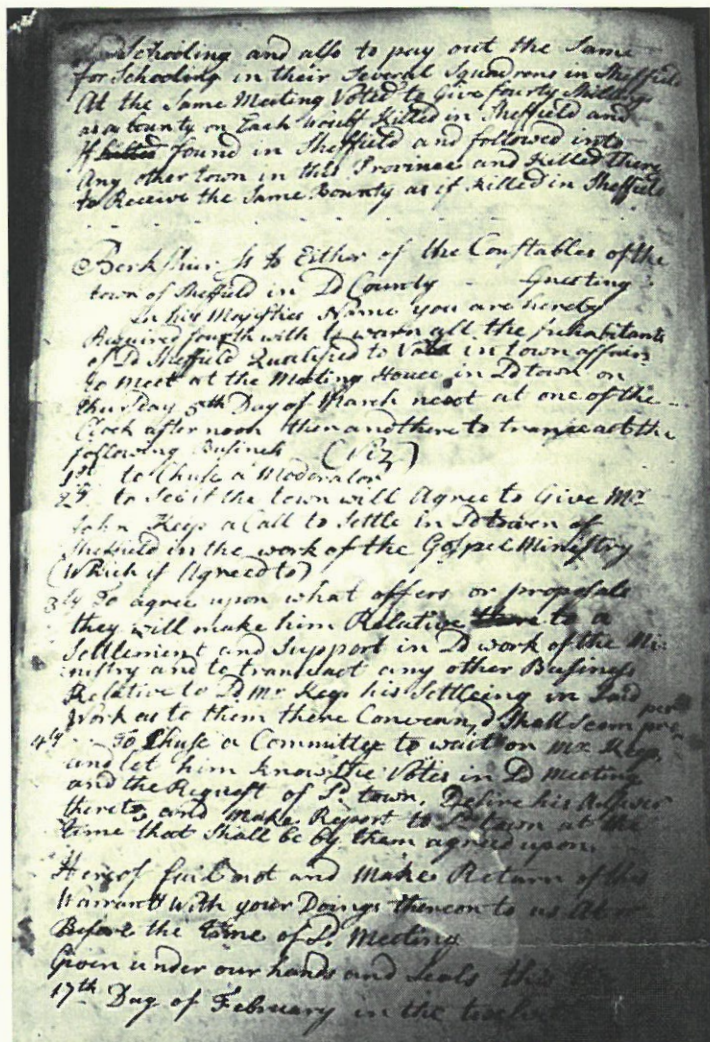 Schooling and also to pay out the Same
for Schooling in their Several Squadrons in Sheffield
At the Same Meeting Voted to Give fourty Shillings
as a bounty on Each Woulf Killed in Sheffield and
If found in Sheffield and followed into
Any other town in this Province and Killed There
to Receive the Same Bounty as if Killed in Sheffield
Berkshire Ss to Either of the Constables of the
town of Sheffield in Sd County Greeting
In his Majesties Name you are hereby
Required fourth with to warn all the Inhabitants
of Sd Sheffield Qualified to Vote in town affairs
to meet at the Meeting House in Sd town on
thursday 5th Day of March next at one of the
Clock afternoon then and there to transact the
following Business (Viz)
1st to Chuse a Moderator
2ly to See if the town will Agree to Give Mr
John Keep a Call to Settle in Sd town of
Sheffield in the work of the Gospel Ministry
(Which if Agreed to)
3ly To agree upon what offers or proposals
they will make him Relative to a
Settlement and Support in Sd work of the Mi-
nistry and to transact any other Business
Relative to Sd Mr Keep his Settleing in Said
Work as to them there Concern,d Shall Seem proper
4ly To Chuse a Committee to wait on Mr Keep
and let him know the Votes in Sd Meeting
and the Request of Sd town, Desire his Answer
thereto, and make Report to Sd town at the
time that Shall be by them agreed upon.
Hereof fail not and Make Return of this
Warrantt with your Doings thereon to us At
Before the time of Sd Meeting
Given under our hands and Seals this
17th Day of February in the